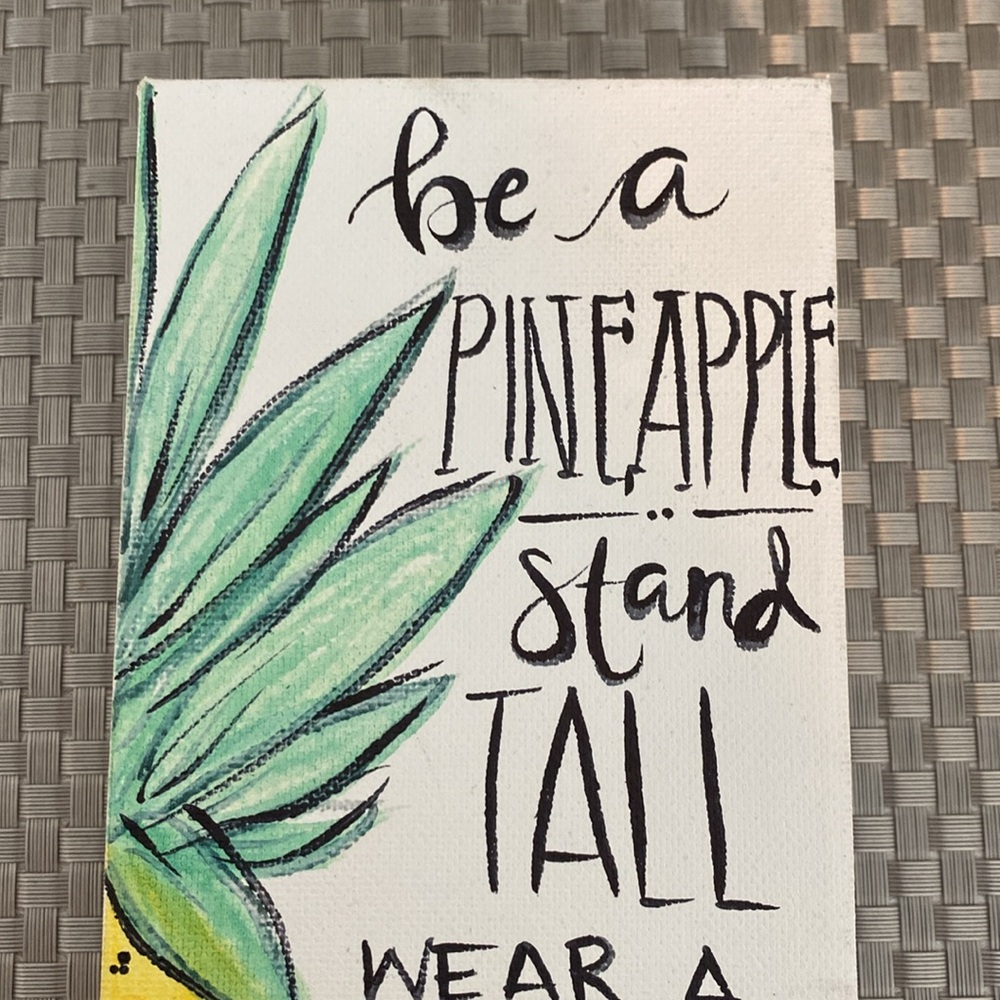 be a
PINEAPPLE
stand
TALL
WEAR A